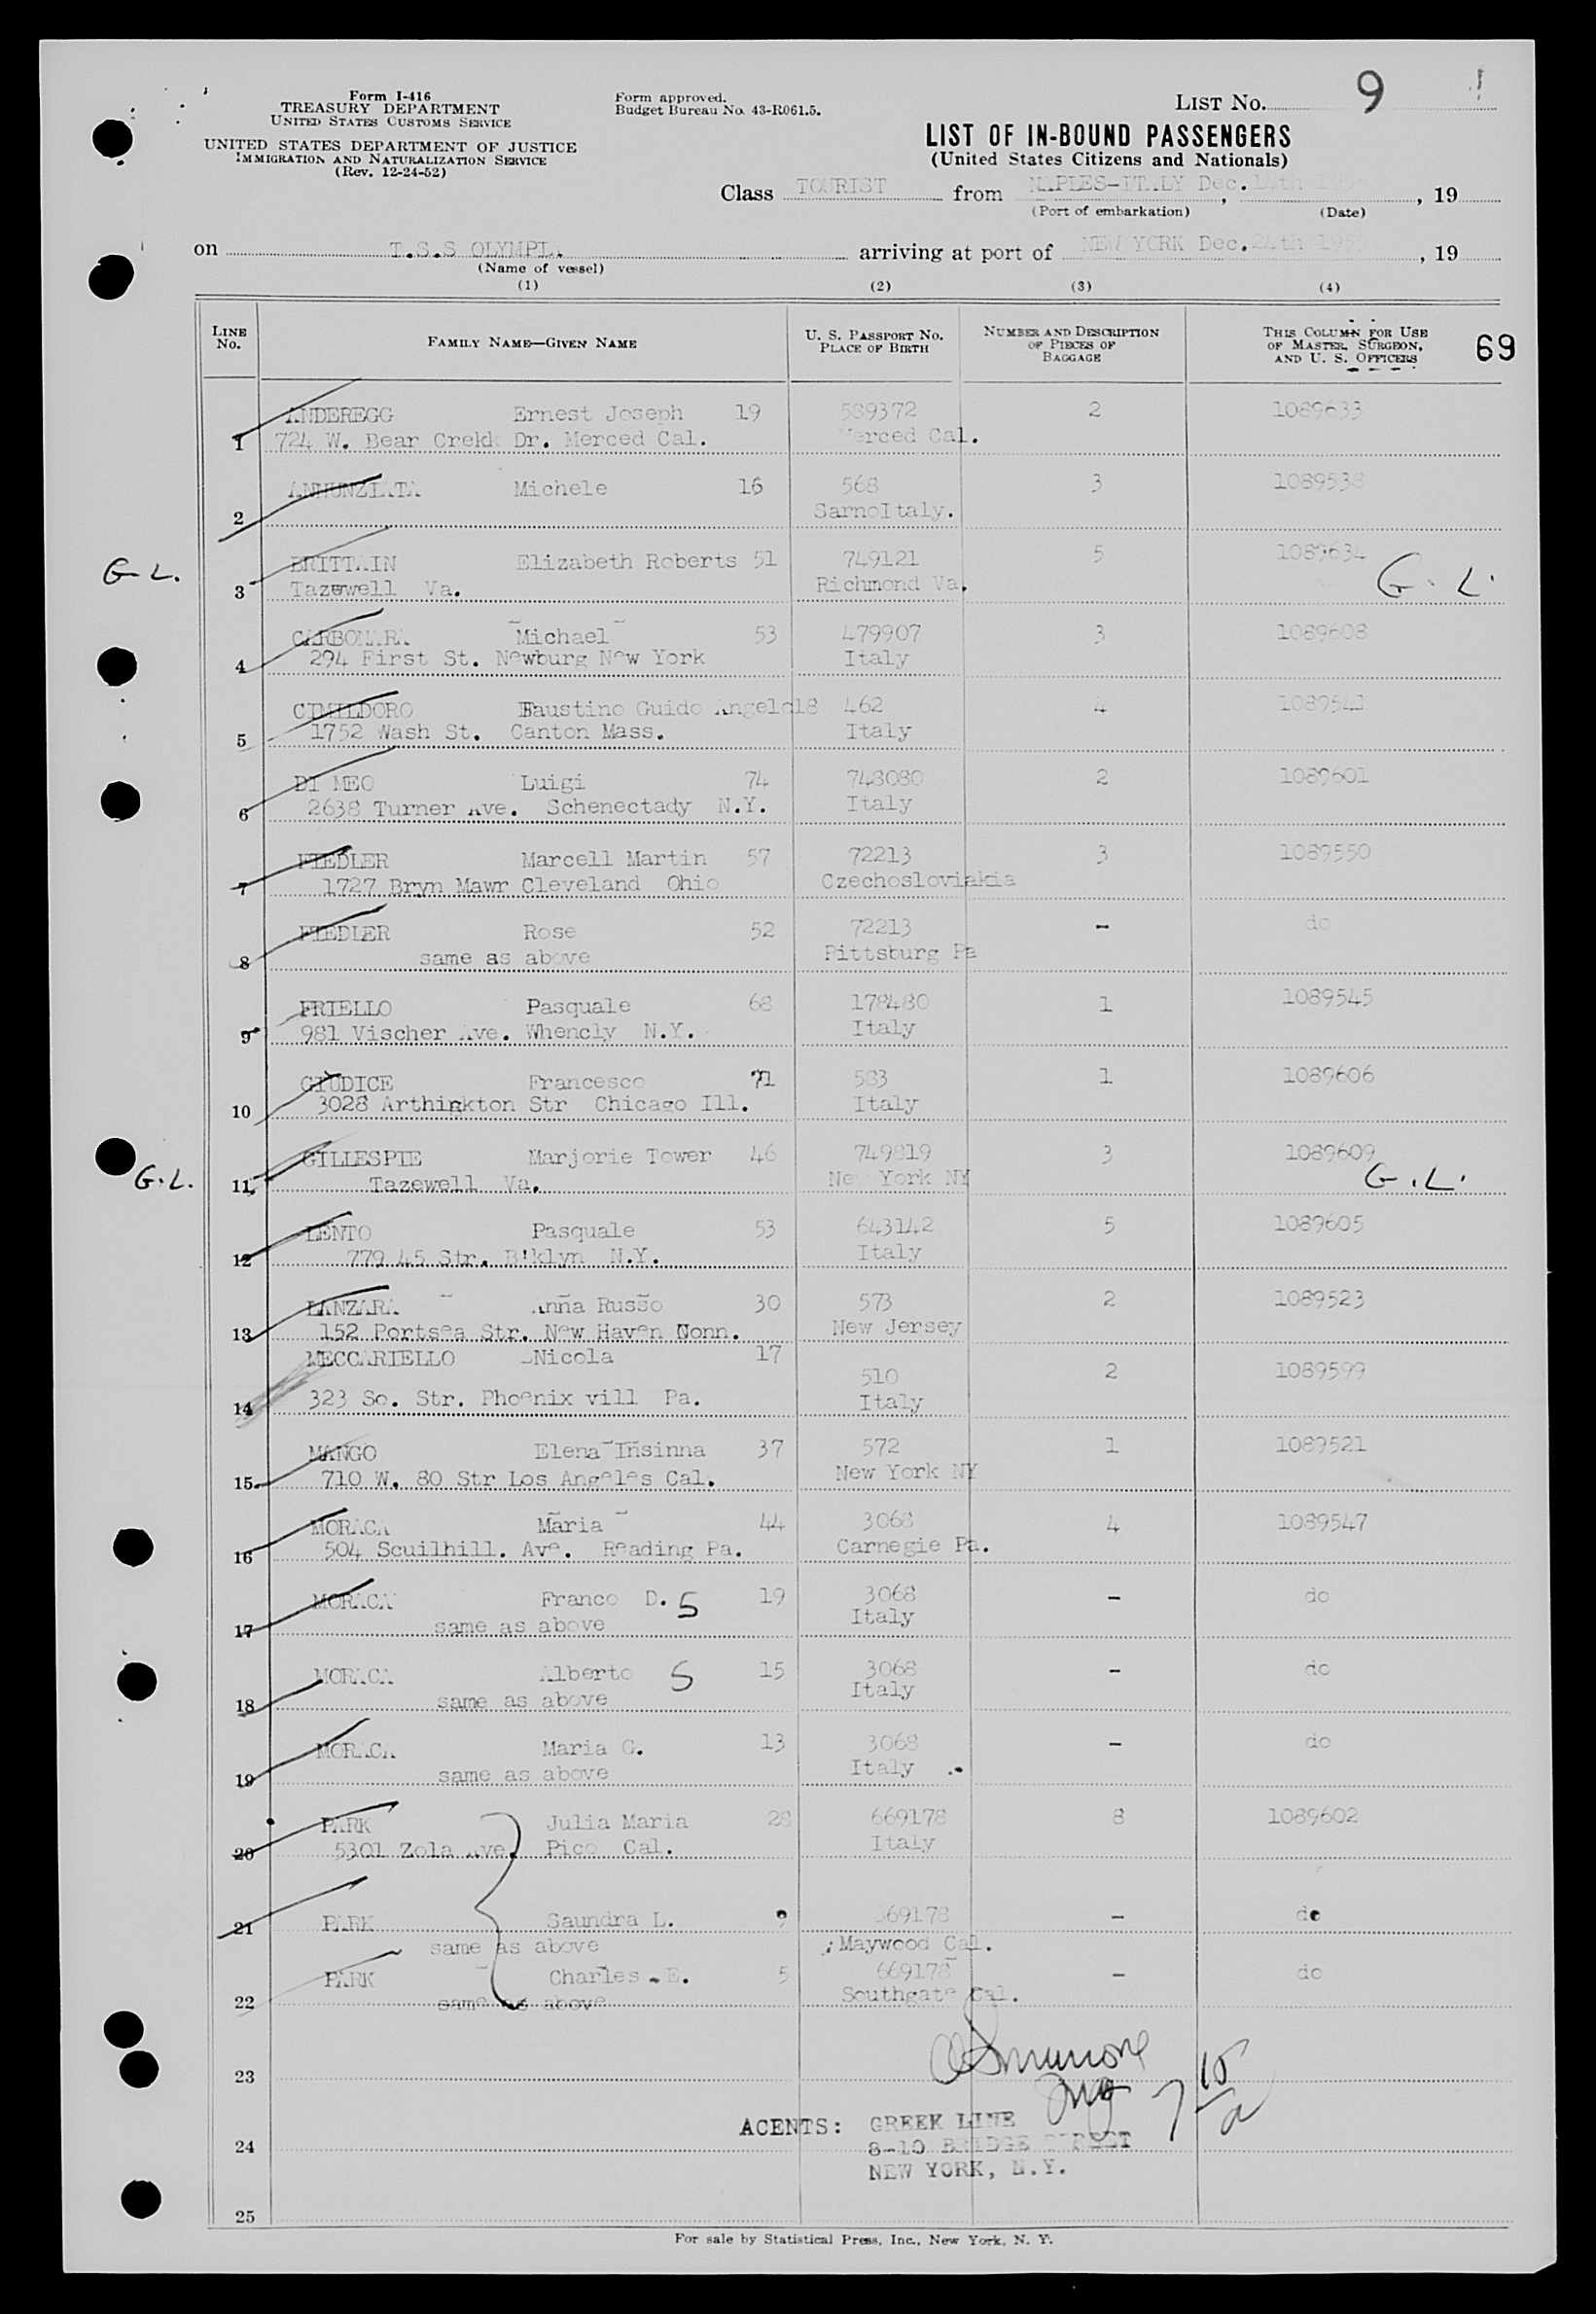 Form I-416
TREASURY DEPARTMENT
UNITED STATES CUSTOMS SERVICE
UNITED STATES DEPARTMENT OF JUSTICE
IMMIGRATION AND NATURALIZATION SERVICE
(Rev. 12-24-52)
Form approved.
Budget Bureau No. 43-R061.5.
LIST NO. 9
LIST OF IN-BOUND PASSENGERS
(United States Citizens and Nationals)
Class TOURIST from NAPLES-ITALY Dec. , 19
(Port of embarkation) (Date)
on T.S.S OLYMPIA arriving at port of NEW YORK Dec. 24th 195 , 19
(Name of vessel)
(1) (2) (3) (4)
LINE No. FAMILY NAME—GIVEN NAME U. S. PASSPORT NO. PLACE OF BIRTH NUMBER AND DESCRIPTION OF PIECES OF BAGGAGE THIS COLUMN FOR USE OF MASTER, SURGEON, AND U. S. OFFICERS 69
ANDEREGG Ernest Joseph 19 589372 2 1089633
1 724 W. Bear Creld Dr. Merced Cal. Merced Cal.
ANNUNZIATA Michele 16 568 3 1089538
2 SarnoItaly.
G L. BRITTAIN Elizabeth Roberts 51 749121 5 1089634 G. L.
3 Tazewell Va. Richmond Va.
CARBONARA Michael 53 479907 3 1089608
4 294 First St. Newburg New York Italy
CIMILDORO Faustino Guido Angelo18 462 4
5 1752 Wash St. Canton Mass. Italy
DI MEO Luigi 74 748080 2 1089601
6 2638 Turner Ave. Schenectady N.Y. Italy
FIEDLER Marcell Martin 57 72213 3 1089550
7 1727 Bryn Mawr Cleveland Ohio Czechosloviakia
FIEDLER Rose 52 72213 - do
8 same as above Pittsburg Pa
FRIELLO Pasquale 68 178480 1 1089545
9 981 Vischer Ave. Whencly N.Y. Italy
GIUDICE Francesco 71 583 1 1089606
10 3028 Arthinkton Str Chicago Ill. Italy
GILLESPIE Marjorie Tower 46 749819 3 1089609
G.L. 11 Tazewell Va. New York NY G.L.
LENTO Pasquale 53 643142 5 1089605
12 779 45 Str. B'klyn N.Y. Italy
LANZARA Anna Russo 30 573 2 1089523
13 152 Portsea Str. New Haven Conn. New Jersey
MECCARIELLO Nicola 17 510 2 1089599
14 323 So. Str. Phoenix vill Pa. Italy
MANGO Elena Insinna 37 572 1 1089521
15 710 W. 80 Str Los Angeles Cal. New York NY
MORACA Maria 44 3068 4 1089547
16 504 Scuilhill. Ave. Reading Pa. Carnegie Pa.
MORACA Franco D. S 19 3068 - do
17 same as above Italy
MORACA Alberto S 15 3068 - do
18 same as above Italy
MORACA Maria G. 13 3068 - do
19 same as above Italy
PARK Julia Maria 28 669178 8 1089602
20 5301 Zola Ave. Pico Cal. Italy
21 PARK Saundra L. 9 669178 - do
same as above Maywood Cal.
PARK Charles E. 5 669178 - do
22 same as above Southgate Cal.
23
AGENTS: GREEK LINE
24 8-10 BRIDGE STREET
NEW YORK, N.Y.
25
For sale by Statistical Press, Inc., New York, N. Y.